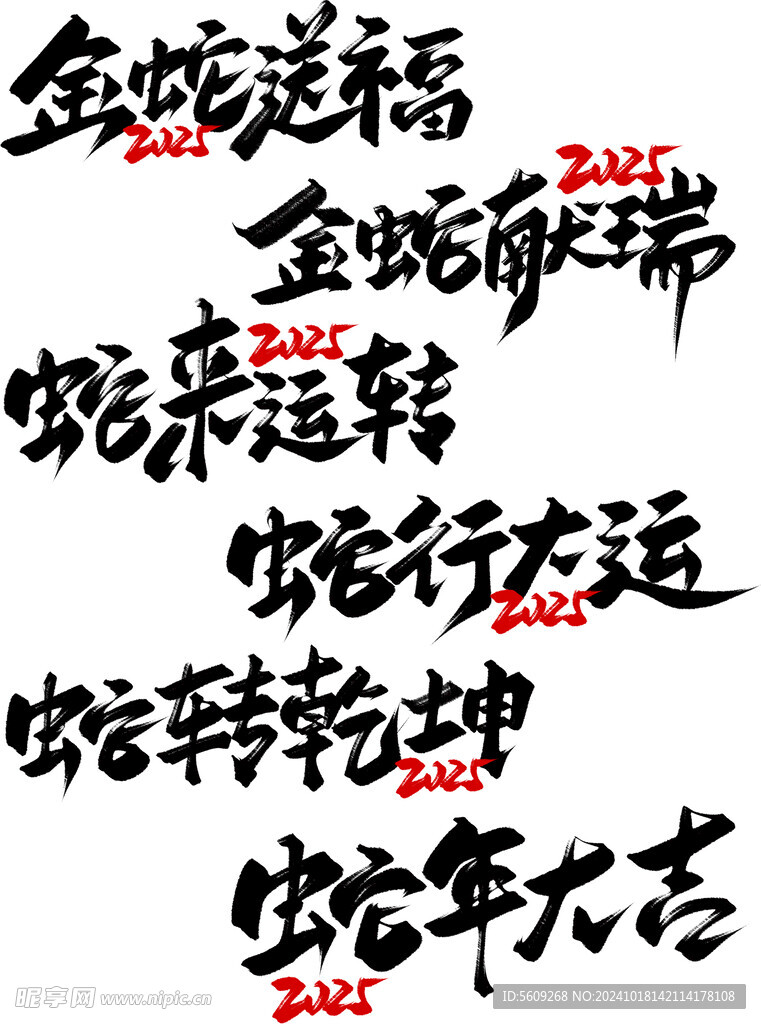 金蛇送福
2025
2025
金蛇献瑞
2025
蛇来运转
蛇行大运
2025
蛇转乾坤
2025
蛇年大吉
2025
昵享网 www.nipic.cn
ID:5609268 NO:20241018142114178108